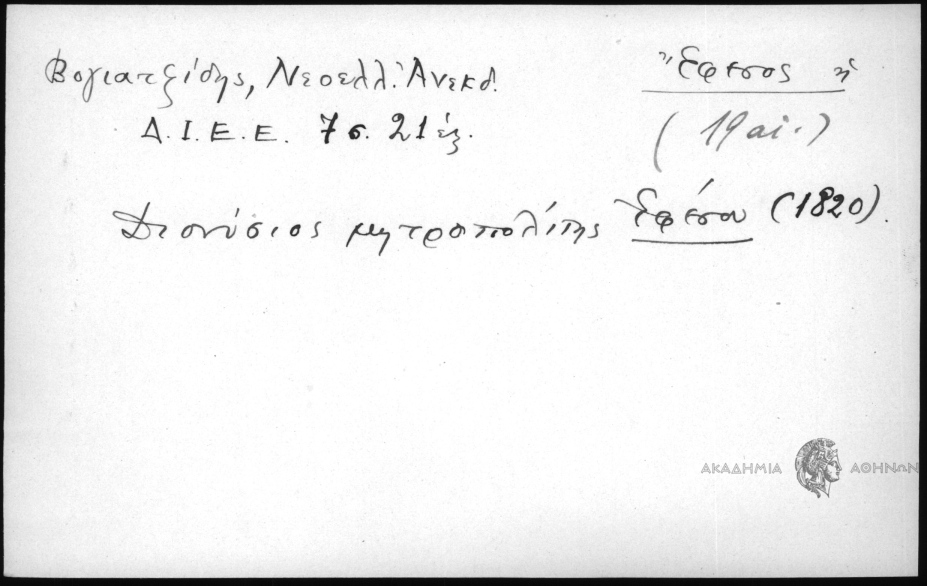 Βογιατζίδης, Νεοελλ. Ἀνεκδ.
Δ. Ι. Ε. Ε. 7 σ. 21 ἑξ.
Ἔφεσος ἡ
(19 αἰ.)
Διονύσιος μητροπολίτης Ἐφέσου (1820).
ΑΚΑΔΗΜΙΑ ΑΘΗΝΩΝ